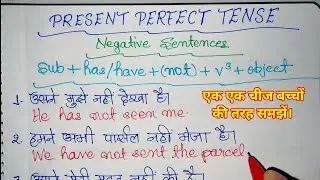 PRESENT PERFECT TENSE
Negative Sentences
Sub + has/have + (not) + V³ + object
1. उसने मुझे नहीं देखा है।
He has not seen me.
एक एक चीज बच्चों
की तरह समझें।
2. हमने अभी पार्सल नहीं भेजा है।
We have not sent the parcel
नहीं की है।